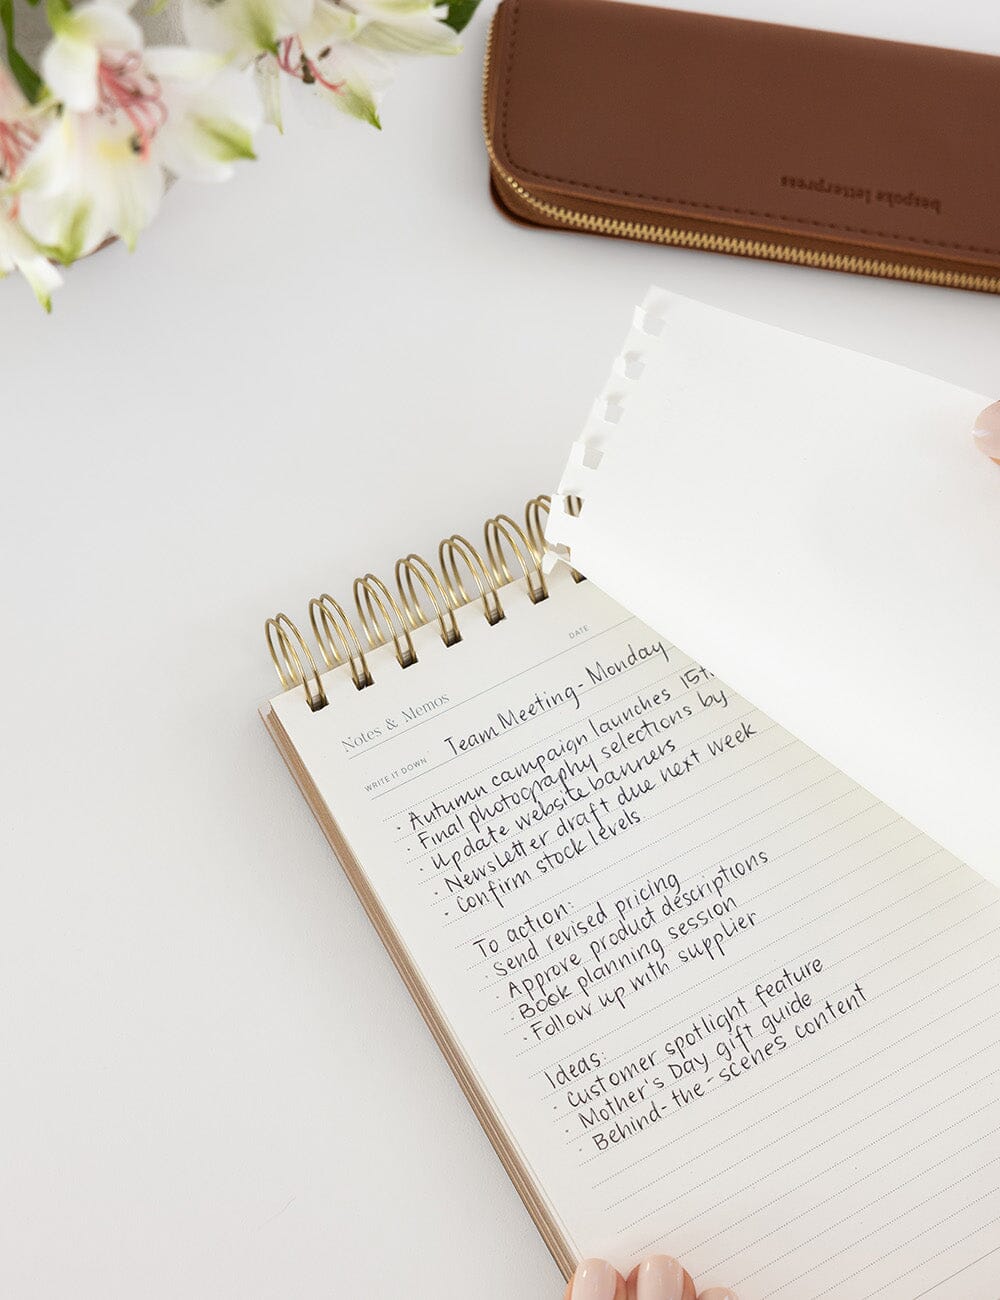 bespoke letterpress
DATE
Notes & Memos
WRITE IT DOWN
Team Meeting - Monday
· Autumn campaign launches 15t
· Final photography selections by
· Update website banners
· Newsletter draft due next week
· Confirm stock levels
To action:
· Send revised pricing
· Approve product descriptions
· Book planning session
· Follow up with supplier
Ideas:
· Customer spotlight feature
· Mother's Day gift guide
· Behind-the-scenes content